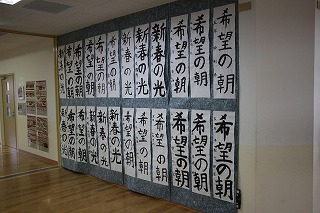 希望の朝
希望の朝
希望の朝
新春の光
新春の光
新春の光
新春の光
希望の朝
希望の朝
希望の朝
希望の朝
希望の朝
希望の朝
希望の朝
希望の朝
希望の朝
新春の光
新春の光
新春の光
希望の朝
新春の光